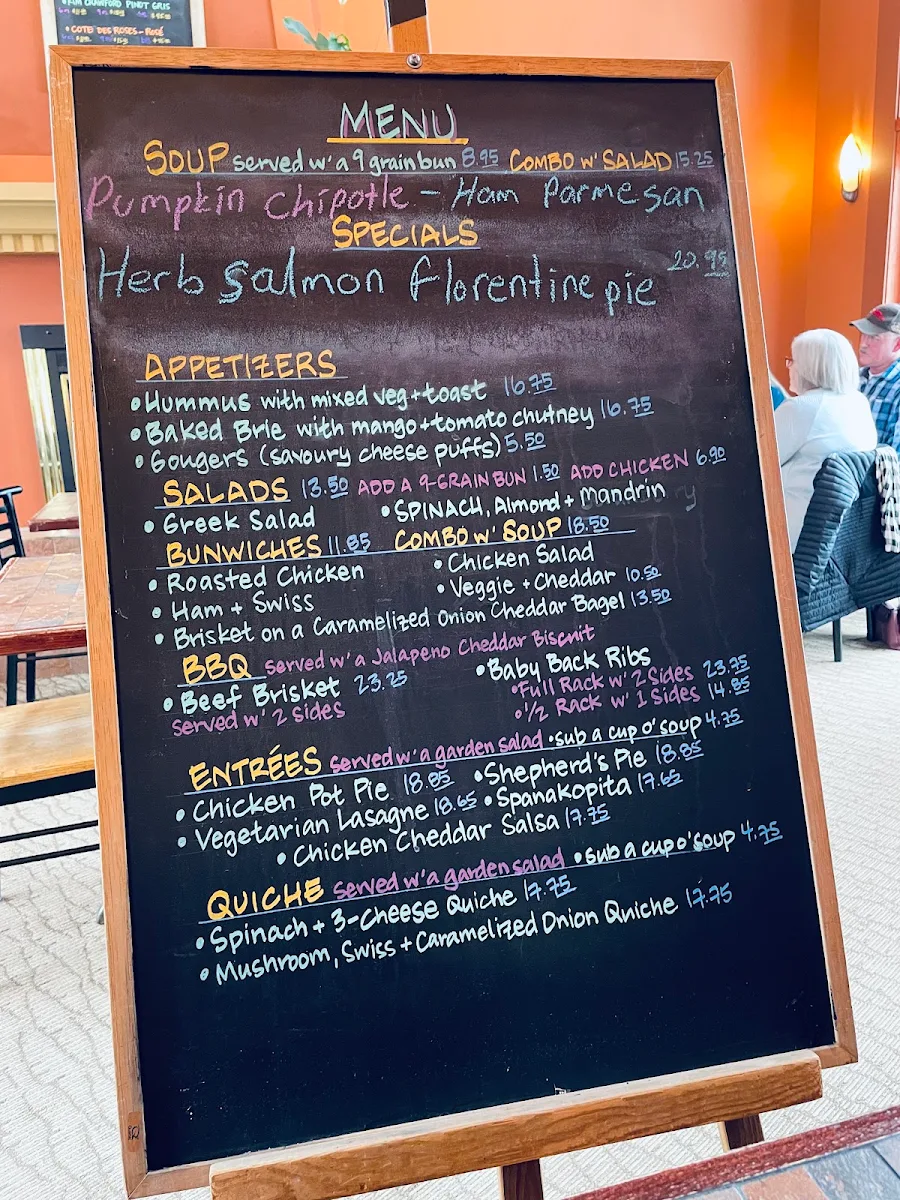 KIM CRAWFORD PINOT GRIS
COTE DES ROSES - ROSÉ
MENU
SOUP served w' a 9 grain bun 8.95 COMBO w' SALAD 15.25
Pumpkin Chipotle - Ham Parmesan
SPECIALS
Herb Salmon florentine pie 20.95
APPETIZERS
•Hummus with mixed veg + toast 16.75
•Baked Brie with mango + tomato chutney 16.75
•Gougers (savoury cheese puffs) 5.50
SALADS 13.50 ADD A 9-GRAIN BUN 1.50 ADD CHICKEN 6.90
•Greek Salad •SPINACH, Almond + Mandrin
BUNWICHES 11.85 COMBO w' SOUP 18.50
•Roasted Chicken •Chicken Salad
•Ham + Swiss •Veggie + Cheddar 10.50
•Brisket on a Caramelized Onion Cheddar Bagel 13.50
BBQ served w' a Jalapeno Cheddar Biscuit
•Beef Brisket 23.25 •Baby Back Ribs
served w' 2 sides •Full Rack w' 2 Sides 23.75
•1/2 Rack w' 1 Sides 14.85
ENTRÉES served w' a garden salad •sub a cup o' soup 4.75
•Chicken Pot Pie 18.85 •Shepherd's Pie 18.85
•Vegetarian Lasagne 18.65 •Spanakopita 17.65
•Chicken Cheddar Salsa 17.75
QUICHE served w' a garden salad •sub a cup o' soup 4.75
•Spinach + 3-Cheese Quiche 17.75
•Mushroom, Swiss + Caramelized Onion Quiche 17.75